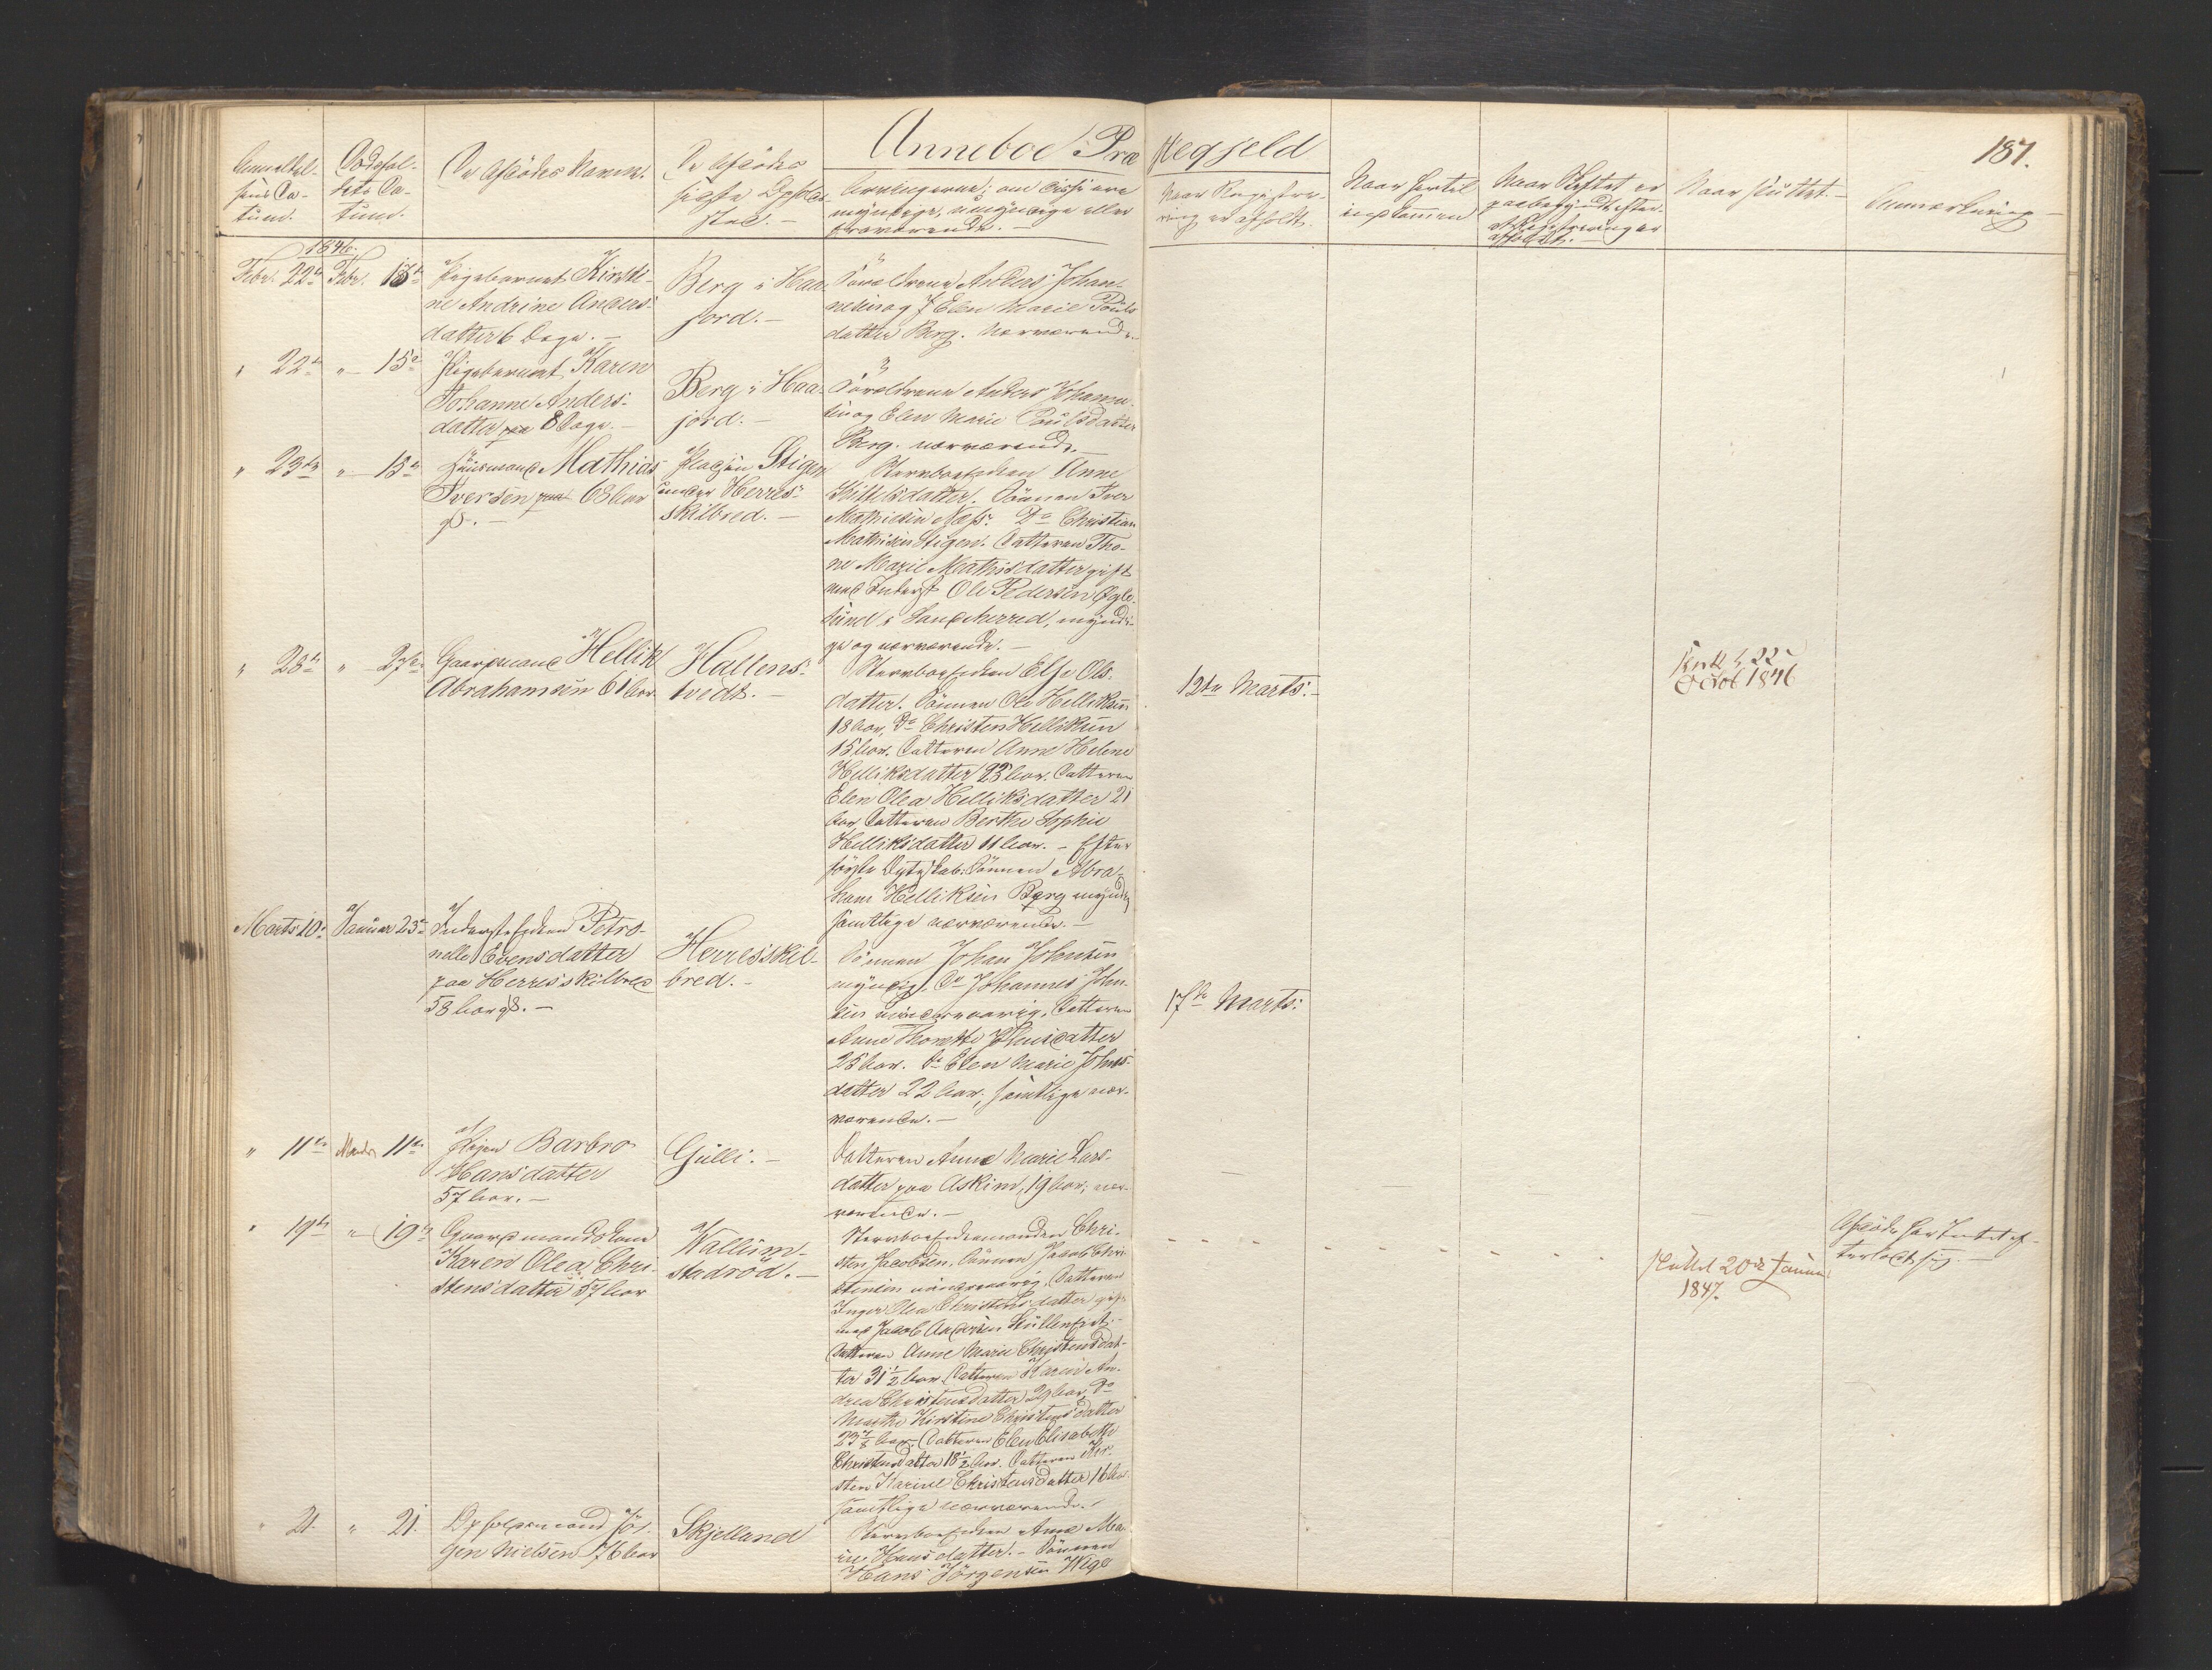 Anneboe Præstegjeld
187.
Anmeldel-
sens Da-
tum.
Dødsfal-
dets Da-
tum.
De Afdødes Navne.
De Afdødes
sidste Opholds-
sted. –
Arvingerne; om disse ere
myndige, umyndige eller
fraværende. –
Naar Registre-
ring er afholdt.
Naar Skiftet er
paabegyndt efter-
at Registrering er
afholdt. –
Naar sluttet. –
Anmærkning –
1846.
Febr. 22de
Febr. 13de
Pigebarnet Kirsti-
ne Andrine Anders-
datter 6 Dage. –
Berg i Haa-
jord. –
Forældrene Anders Johan-
nesen og Elen Marie Pouls
datter Berg. nærværende
" 22de
" 15de
Pigebarnet Karen
Johanne Anders-
datter 8 Dage. –
Berg i Haa-
jord. –
Forældrene Anders Johanne-
sen og Elen Marie Poulsdatter
Berg. nærværende
" 23de
" 13de
Huusmand Mathias
Iversen 68 Aar
gl. –
Pladsen Stigen
under Herres-
skilbred. –
Stervboe Enken Anne
Kittelsdatter. Sønnen Iver
Mathiesen Næss. Do Christian
Mathisen Stigen. Datteren Tho-
ne Marie Mathisdatter gift
med Inderst Ole Pedersen Ogle-
sund i Sandeherred, myndi-
ge og nærværende. –
" 28de
" 27de
Gaardmand Hellik
Abrahamsen 61 Aar
Hallens-
tvedt. –
Stervboe Enken Else Ols-
datter. Sønnen Ole Helliksen
18 Aar, Do Christen Helliksen
15 Aar. Datteren Anne Helene
Helliksdatter 23 Aar. Datteren
Elen Olea Helliksdatter 21
Aar Datteren Berthe Sophie
Helliksdatter 11 Aar. – Efter
første Ægteskab: Sønnen Abra-
ham Helliksen Berg myndig
samtlige nærværende. –
12te Marts: –
Sluttet 22
Octob 1846
Marts 10de
Januar 23de
Inderstenken Petro-
nelle Evensdatter
paa Herresskilbred
58 Aar gl. –
Herresskil-
bred. –
Sønnen Johan Johnsen
myndig, Do Johannes John-
sen mindreaarig, Datteren
Anne Thorette Johnsdatter
25 Aar. Do Elen Marie Johns-
datter 22 Aar; samtlige nær-
værende. –
17de Marts:
" 11te
Marts 11te
Pigen Barbro
Hansdatter
57 Aar. –
Gulli. –
Datteren Anne Marie Lars-
datter paa Askim, 19 Aar; nær-
værende. –
Afdøde har Intet ef-
terladt sig. –
" 19de
" 19de
Gaardmandskone
Karen Olea Chri-
stensdatter 57 Aar
Wallum-
stadrød. –
Stervboe Enkemanden Chri-
sten Jacobsen. Sønnen Jacob Chri-
stensen mindreaarig, Datteren
Inger Olea Christensdatter gift
med Jacob Andersen
Datteren Anne Marie Christensdat-
ter 31 1/2 Aar. Datteren Karen An-
drea Christensdatter 29 Aar, Do
Marthe Kirstine Christensdatter
23 7/8 Aar, Datteren Elen Elisabeth
Christensdatter 18 1/2 Aar. Datteren Kir-
sten Karine Christensdatter 16 Aar
samtlige nærværende. –
Sluttet 20de Januar
1847.
" 21.
" 21.
Opholdsmand Jør-
gen Nielsen 76 Aar
Skjelland
Stervboe Enken Anne Ma-
rie Hansdatter. – Sønnen
Hans Jørgensen Wige